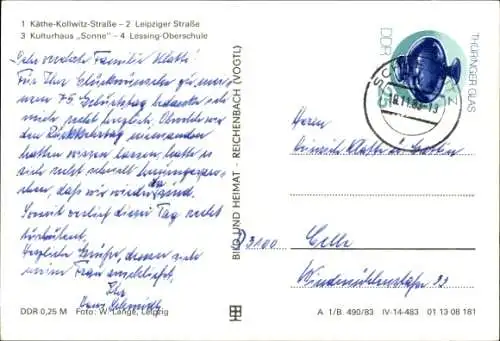 1 Käthe-Kollwitz-Straße – 2 Leipziger Straße
3 Kulturhaus „Sonne“ – 4 Lessing-Oberschule
Sehr verehrte Familie Klatte!
Für Ihre Glückwünsche zu meinem
75. Geburtstag bedanke ich
mich recht herzlich. Obwohl wir
den Rückkehrtag niemanden
hatten wissen lassen, hatte es
sich recht schnell herumgespro-
chen, daß wir wieder da sind.
Somit verlief dieser Tag recht
turbulent.
Herzliche Grüße, denen sich
meine Frau anschließt,
Ihr
Schmidt
DDR 0,25 M Foto: W. Lange, Leipzig
BILD UND HEIMAT - REICHENBACH (VOGTL)
DDR
THÜRINGER GLAS
Herrn
Heinrich Klatte u. Gattin
D 3100 Celle
Windmühlenstraße 33
A 1/B 490/83 IV-14-483 01 13 08 181